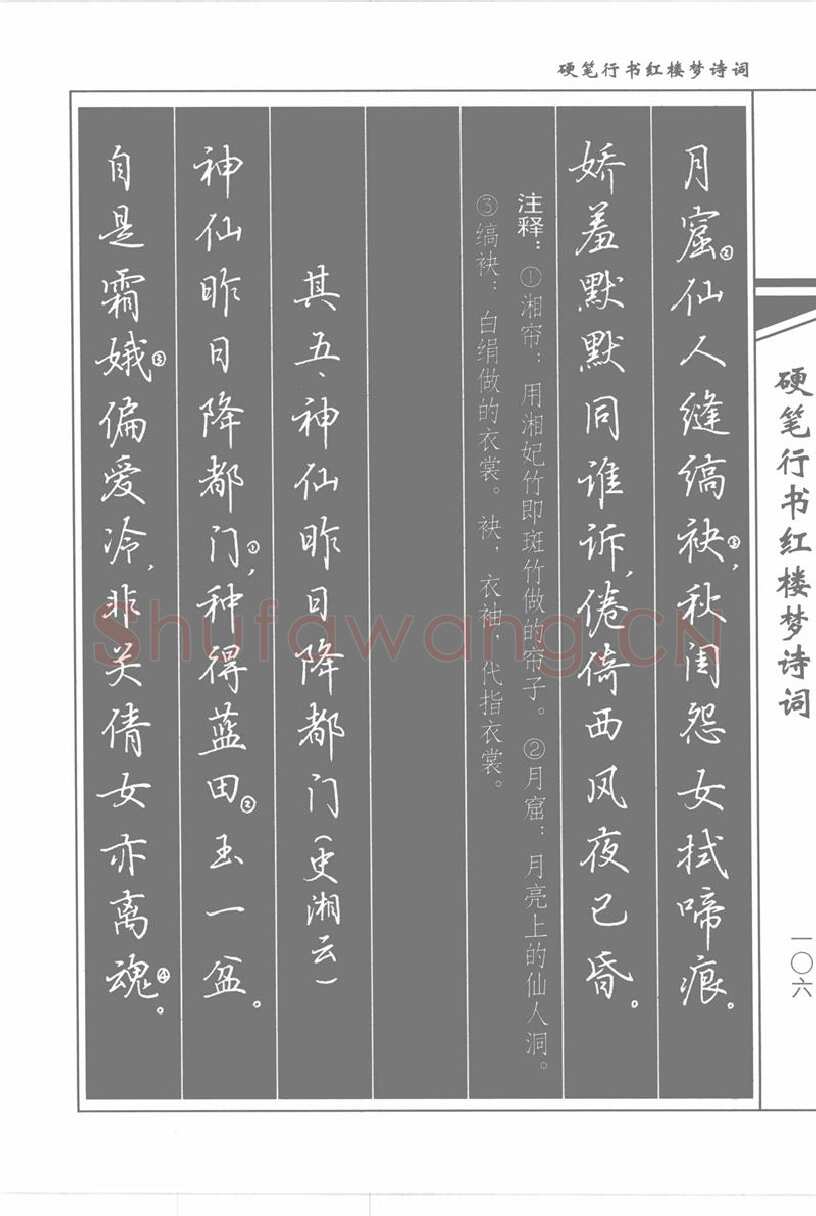 硬笔行书红楼梦诗词
月窟②仙人缝缟袂③,秋闺怨女拭啼痕。
娇羞默默同谁诉,倦倚西风夜已昏。
注释：①湘帘：用湘妃竹即斑竹做的帘子。②月窟：月亮上的仙人洞。
③缟袂：白绢做的衣裳。袂，衣袖，代指衣裳。
其五、神仙昨日降都门(史湘云)
神仙昨日降都门①,种得蓝田②玉一盆。
自是霜娥③偏爱冷,非关倩女亦离魂④。
硬笔行书红楼梦诗词
一〇六
Shufawang.CN